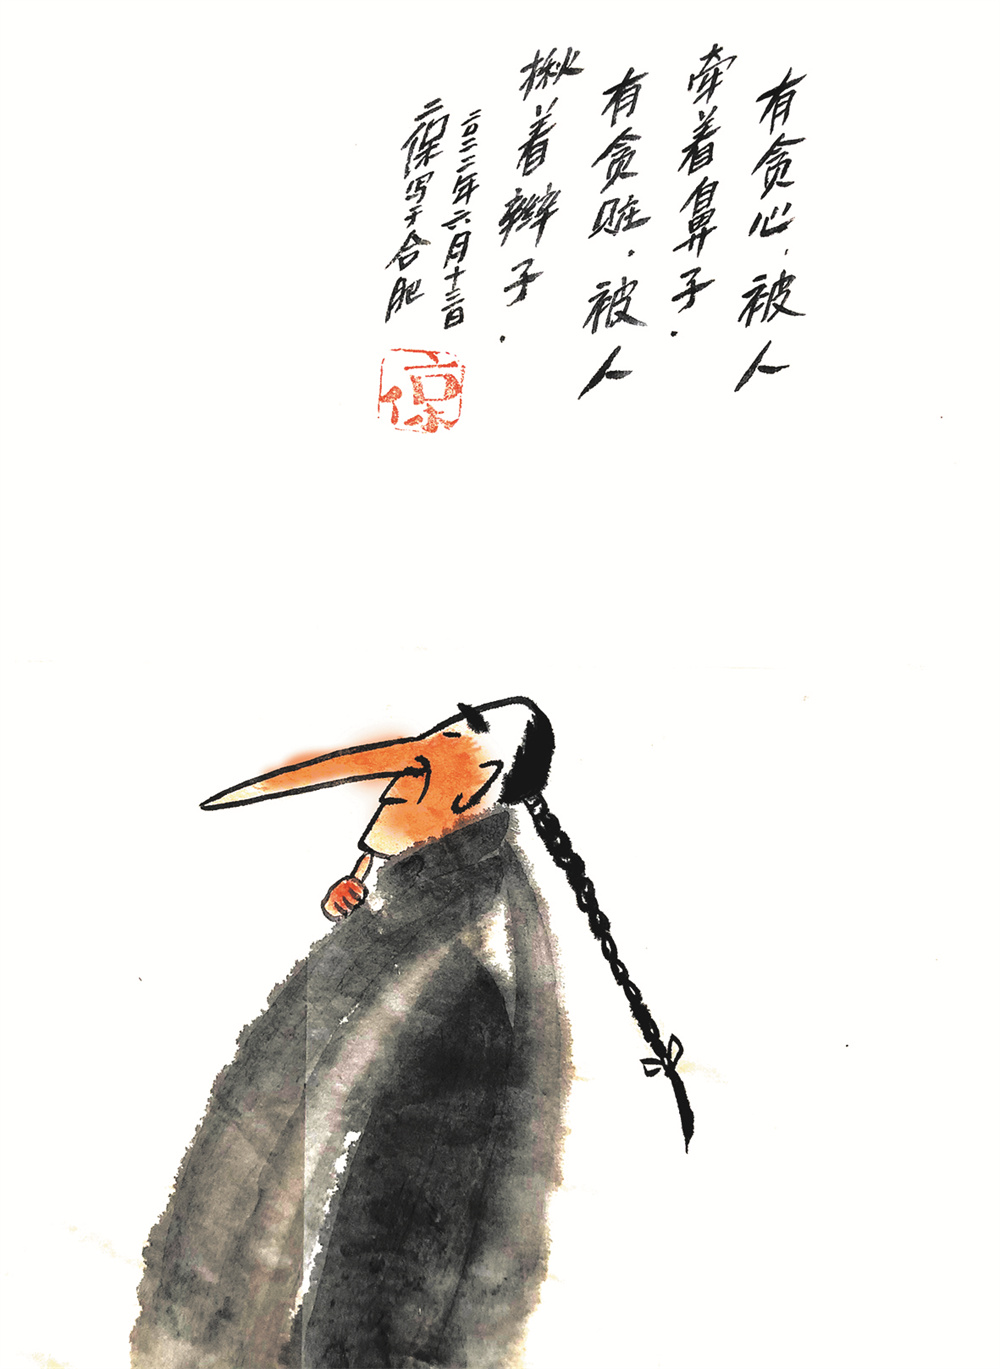 有贪心，被人
牵着鼻子．
有贪赃．被人
揪着辫子．
二〇二二年六月十三日
二保写于合肥
二保